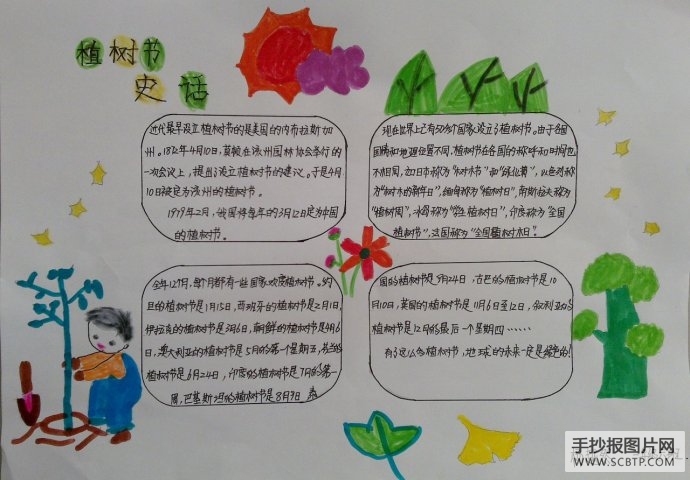 植树节
史话
近代最早设立植树节的是美国的内布拉斯加
州。1872年4月10日,莫顿在该州园林协会举行的
一次会议上,提出了设立植树节的建议。于是4月
10日被定为该州的植树节。
1979年2月,我国将每年的3月12日定为中国
的植树节。
现在世界上已有50多个国家设立了植树节。由于各国
国情和地理位置不同,植树节在各国的称呼和时间也
不相同,如日本称为“树木节”和“绿化周”,以色列称
为“树木的新年日”,缅甸称为“植树日”,南斯拉夫称为
“植树周”,冰岛称为“学生植树日”,印度称为“全国
植树节”,法国称为“全国植树日”。
全年12个月,每个月都有一些国家欢度植树节。约
旦的植树节是1月15日,西班牙的植树节是2月1日,
伊拉克的植树节是3月6日,朝鲜的植树节是4月6
日,澳大利亚的植树节是5月的第一个星期五,芬兰的
植树节是6月24日,印度的植树节是7月的第一
周,巴基斯坦的植树节是8月9日 泰
国的植树节是9月24日,古巴的植树节是10
月10日,英国的植树节是11月6日至12日,叙利亚的
植树节是12月的最后一个星期四……
有了这么多植树节,地球的未来一定是绿色的!
手抄报图片网
WWW.SCBTP.COM